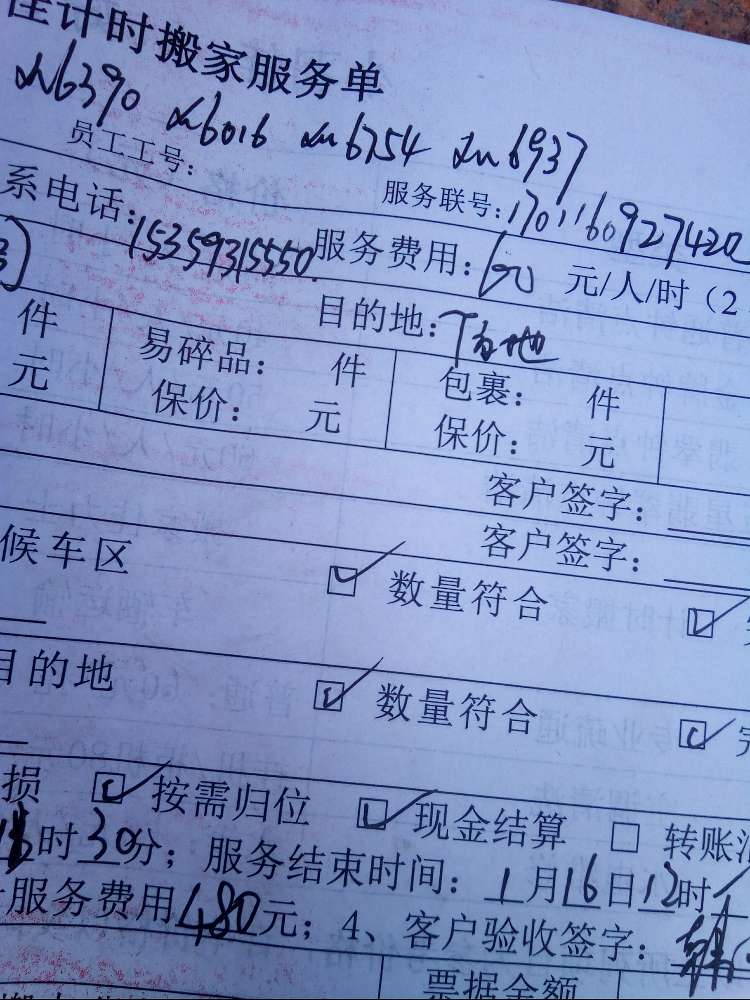 佳计时搬家服务单
xm6390 xm6016 xm6754 xm6937
员工工号:
服务联号:1701160927420
系电话:15359315550 服务费用:60 元/人/时（2
目的地:
件 易碎品: 件 包裹: 件
元 保价: 元 保价: 元
客户签字:
客户签字:
候车区 ☑ 数量符合 ☑
目的地 ☑ 数量符合 ☑ 完
损 ☑ 按需归位 ☑ 现金结算 □ 转账
时30分；服务结束时间:1月16日12时
服务费用480元；4、客户验收签字:韩
票据金额